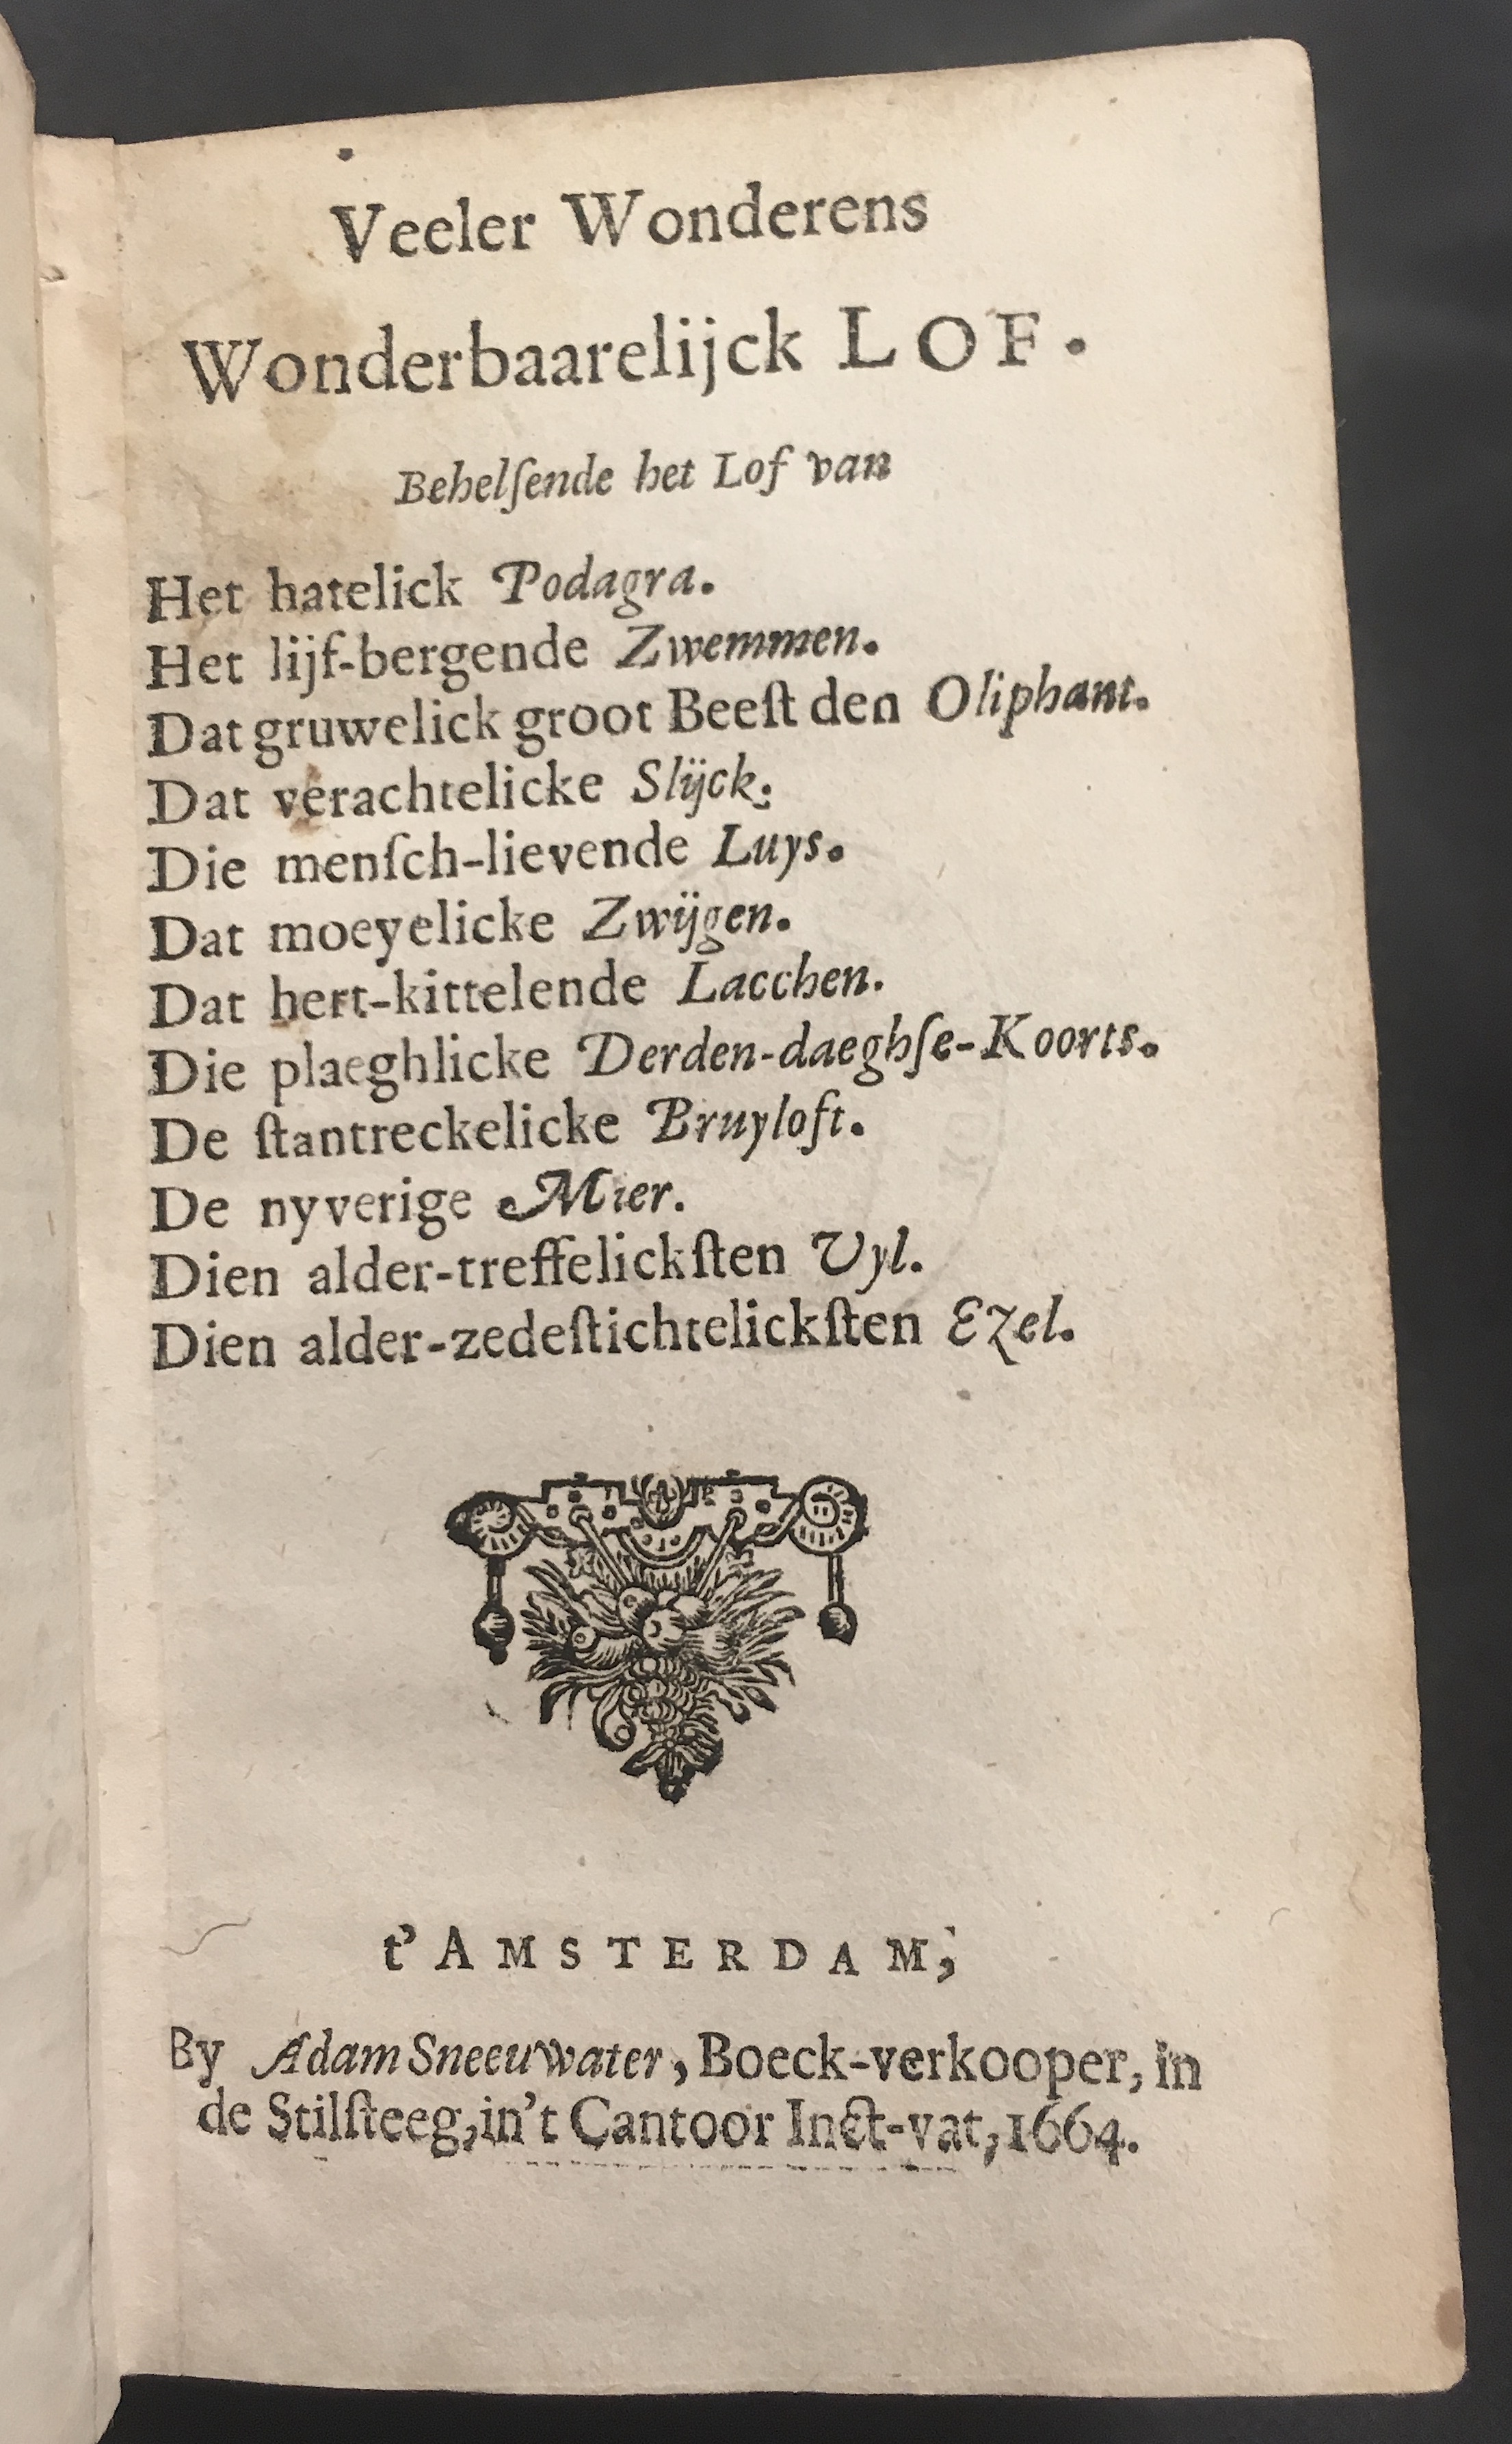 Veeler Wonderens
Wonderbaarelijck LOF.
Behelſende het Lof van
Het hatelick Podagra.
Het lijf-bergende Zwemmen.
Dat gruwelick groot Beeſt den Oliphant.
Dat verachtelicke Slijck.
Die menſch-lievende Luys.
Dat moeyelicke Zwijgen.
Dat hert-kittelende Lacchen.
Die plaeghlicke Derden-daeghſe-Koorts.
De ſtantreckelicke Bruyloft.
De nyverige Mier.
Dien alder-treffelickſten Uyl.
Dien alder-zedeſtichtelickſten Ezel.
t'AMSTERDAM,
By Adam Sneeuwater, Boeck-verkooper, in
de Stilſteeg, in't Cantoor Inct-vat, 1664.